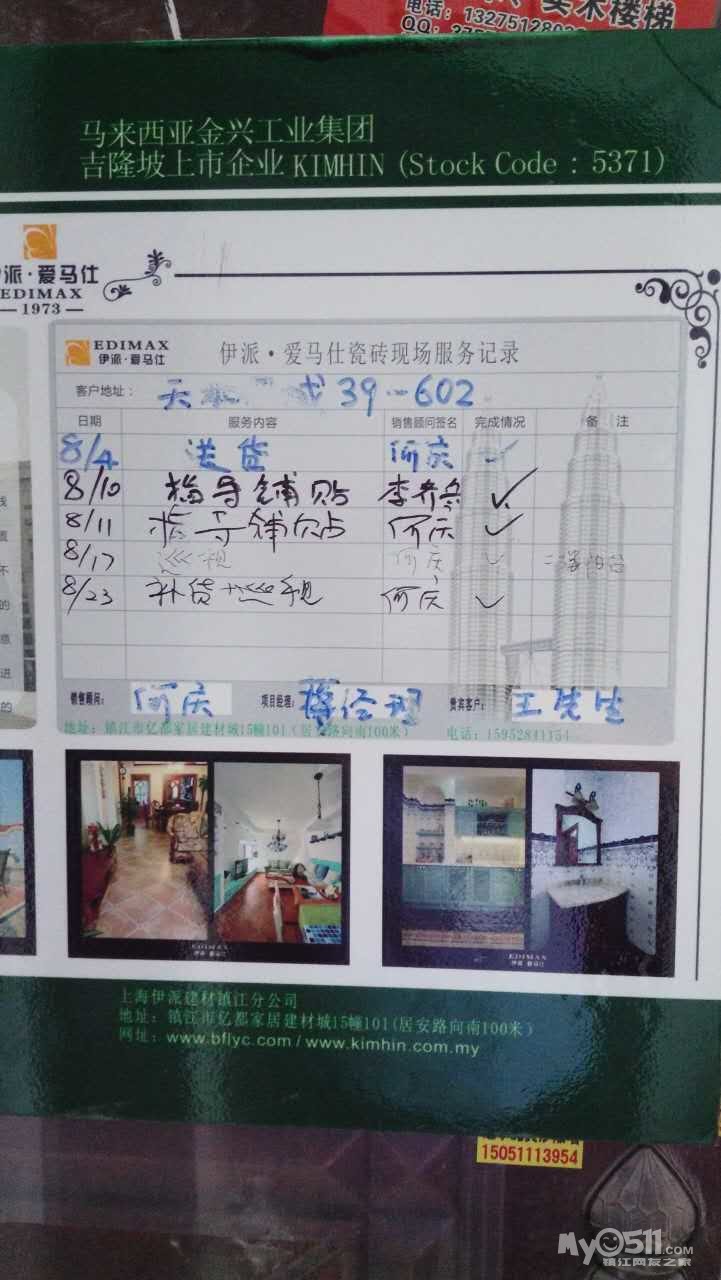 实木楼梯
电话：
QQ：
马来西亚金兴工业集团
吉隆坡上市企业 KIMHIN (Stock Code : 5371)
伊派·爱马仕
EDIMAX
1973
EDIMAX
伊派·爱马仕
伊派·爱马仕瓷砖现场服务记录
客户地址： 39-602
日期 服务内容 销售顾问签名 完成情况 备 注
8/4 送货 何庆 ✓
8/10 指导铺贴 ✓
8/11 指导铺贴 何庆 ✓
8/17 巡视 何庆 ✓ 阳台
8/23 补货+巡视 何庆 ✓
销售顾问： 何庆 项目经理： 蒋经理 贵宾客户： 王先生
地址：镇江市亿都家居建材城15幢101（居安路向南100米） 电话：
EDIMAX
伊派·爱马仕
EDIMAX
伊派·爱马仕
上海伊派建材镇江分公司
地址：镇江市亿都家居建材城15幢101(居安路向南100米)
网址：www.bflyc.com / www.kimhin.com.my
15051113954
My0511.com
镇江网友之家